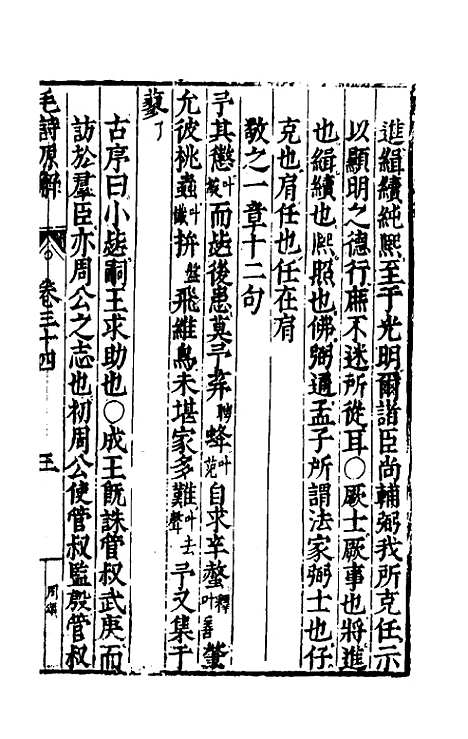 進緝續純熙至于光明爾諸臣尚輔弼我所克任示
以顯明之德行庶不迷所從耳〇厥士厥事也將進
也緝續也熙照也佛弼通孟子所謂法家弼士也仔
克也肩任也任在肩
敬之一章十二句
予其懲而毖後患莫予荓蜂自求辛螫肇
允彼桃蟲拚飛維鳥未堪家多難予又集于
蓼
古序曰小毖嗣王求助也〇成王既誅管叔武庚而
訪於羣臣亦周公之志也初周公使管叔監殷管叔
毛詩原解 卷三十四 五 周頌